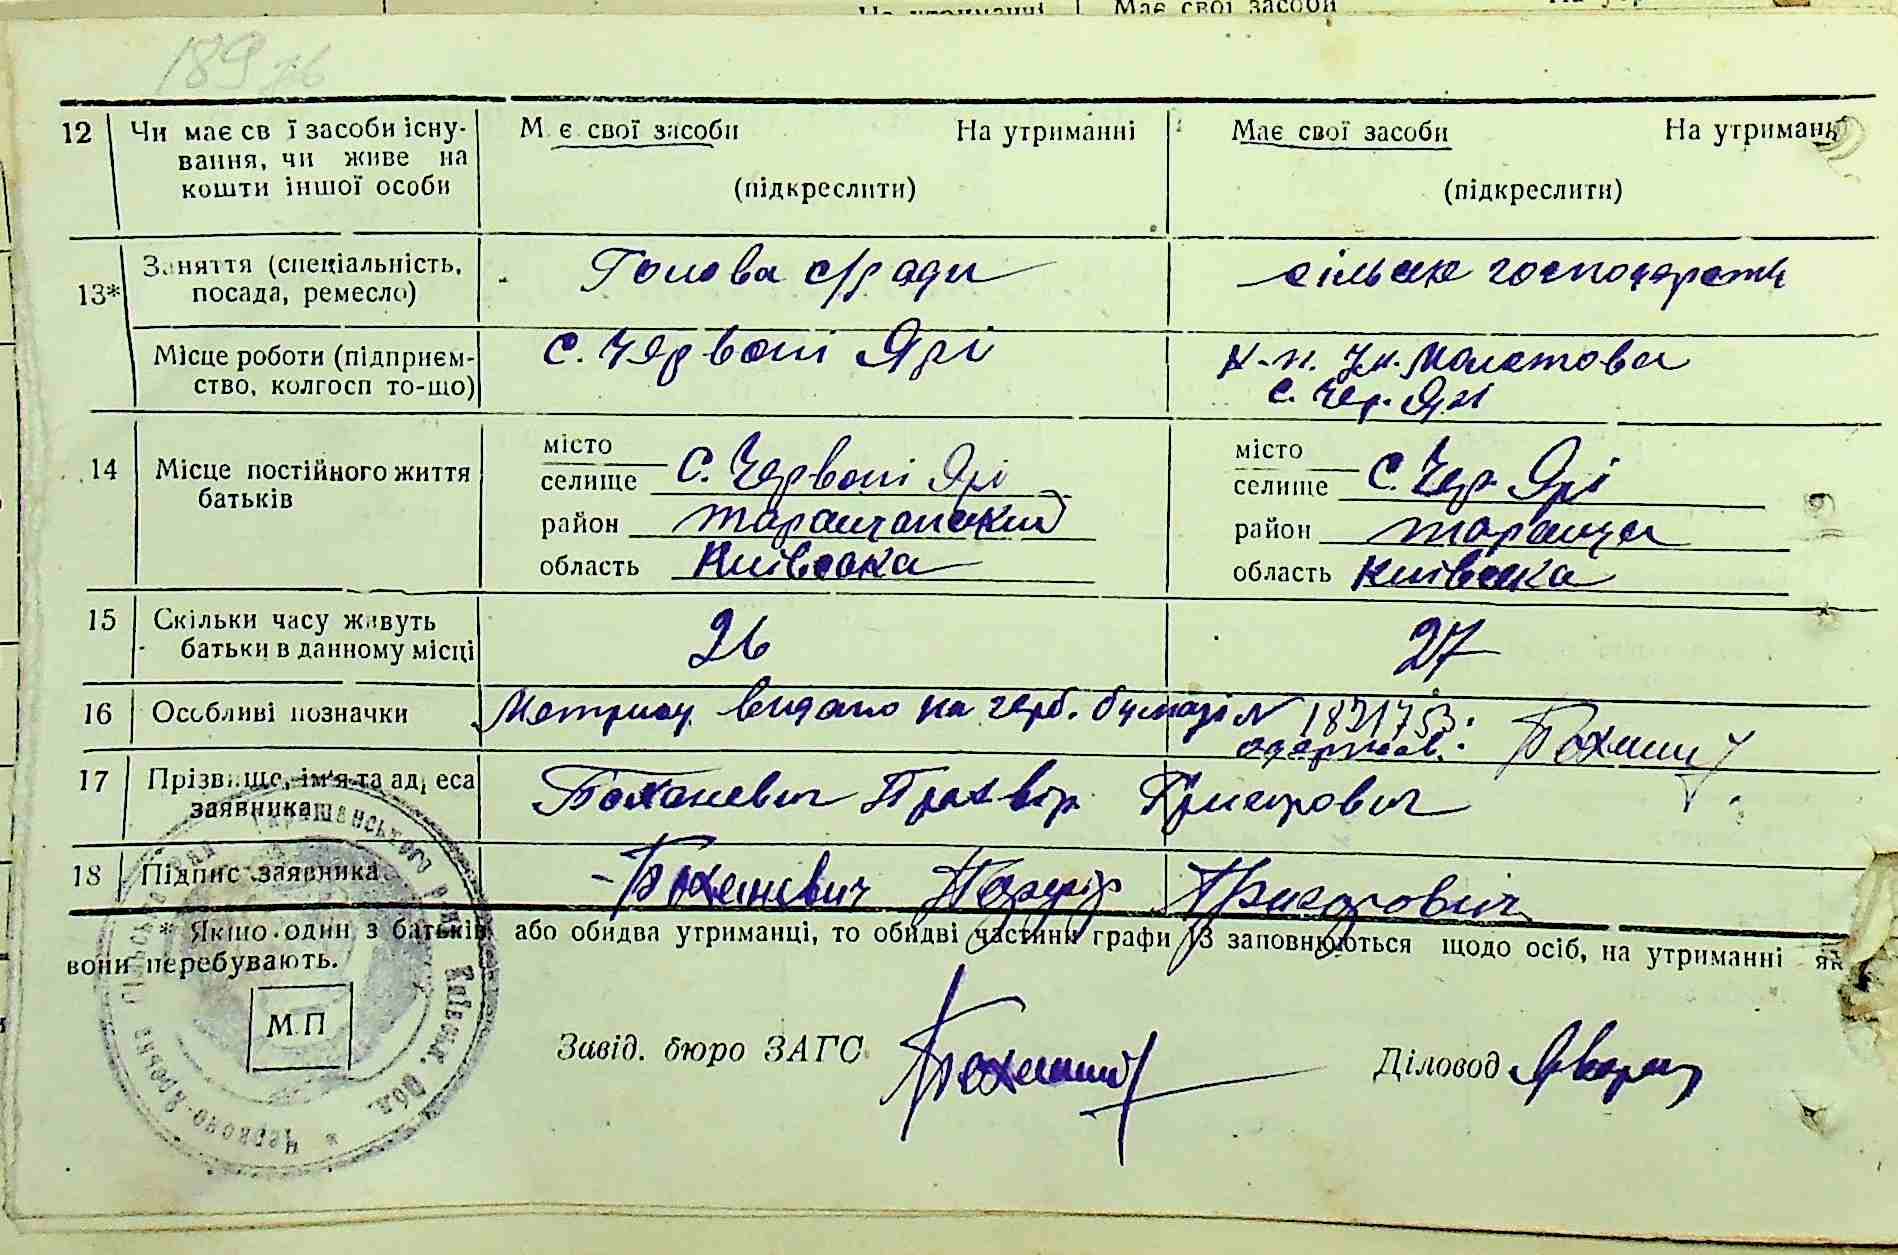 На утриманні Має свої засоби
189 зв
12 Чи має св ї засоби існу- М є свої засоби На утриманні Має свої засоби На утриманні
вання, чи живе на
кошти іншої особи (підкреслити) (підкреслити)
13* Заняття (спеціальність, Голова с/ради сільське господарство
посада, ремесло)
Місце роботи (підприєм- с. Червоні Ярі к-п. Ім. Молотова
ство, колгосп то-що) с. Чер. Ярі
місто місто
14 Місце постійного життя селище с. Червоні Ярі селище с. Чер. Ярі
батьків район Таращанский район Тараща
область Київська область Київська
15 Скільки часу живуть 26 27
батьки в данному місці
16 Особливі позначки Метрику видано на герб. бумазі № 1831753.
одержав.
17 Прізвище, ім'я та адреса Боханевич Григорович
заявника
18 Підпис заявника Боханевич Григорович
* Якщо один з батьків або обидва утриманці, то обидві частини графи 13 заповнюються щодо осіб, на утриманні як
вони перебувають.
М П
Завід. бюро ЗАГС Діловод
Червоно-Ярська сільська рада Таращанського рай. Київськ. Обл.